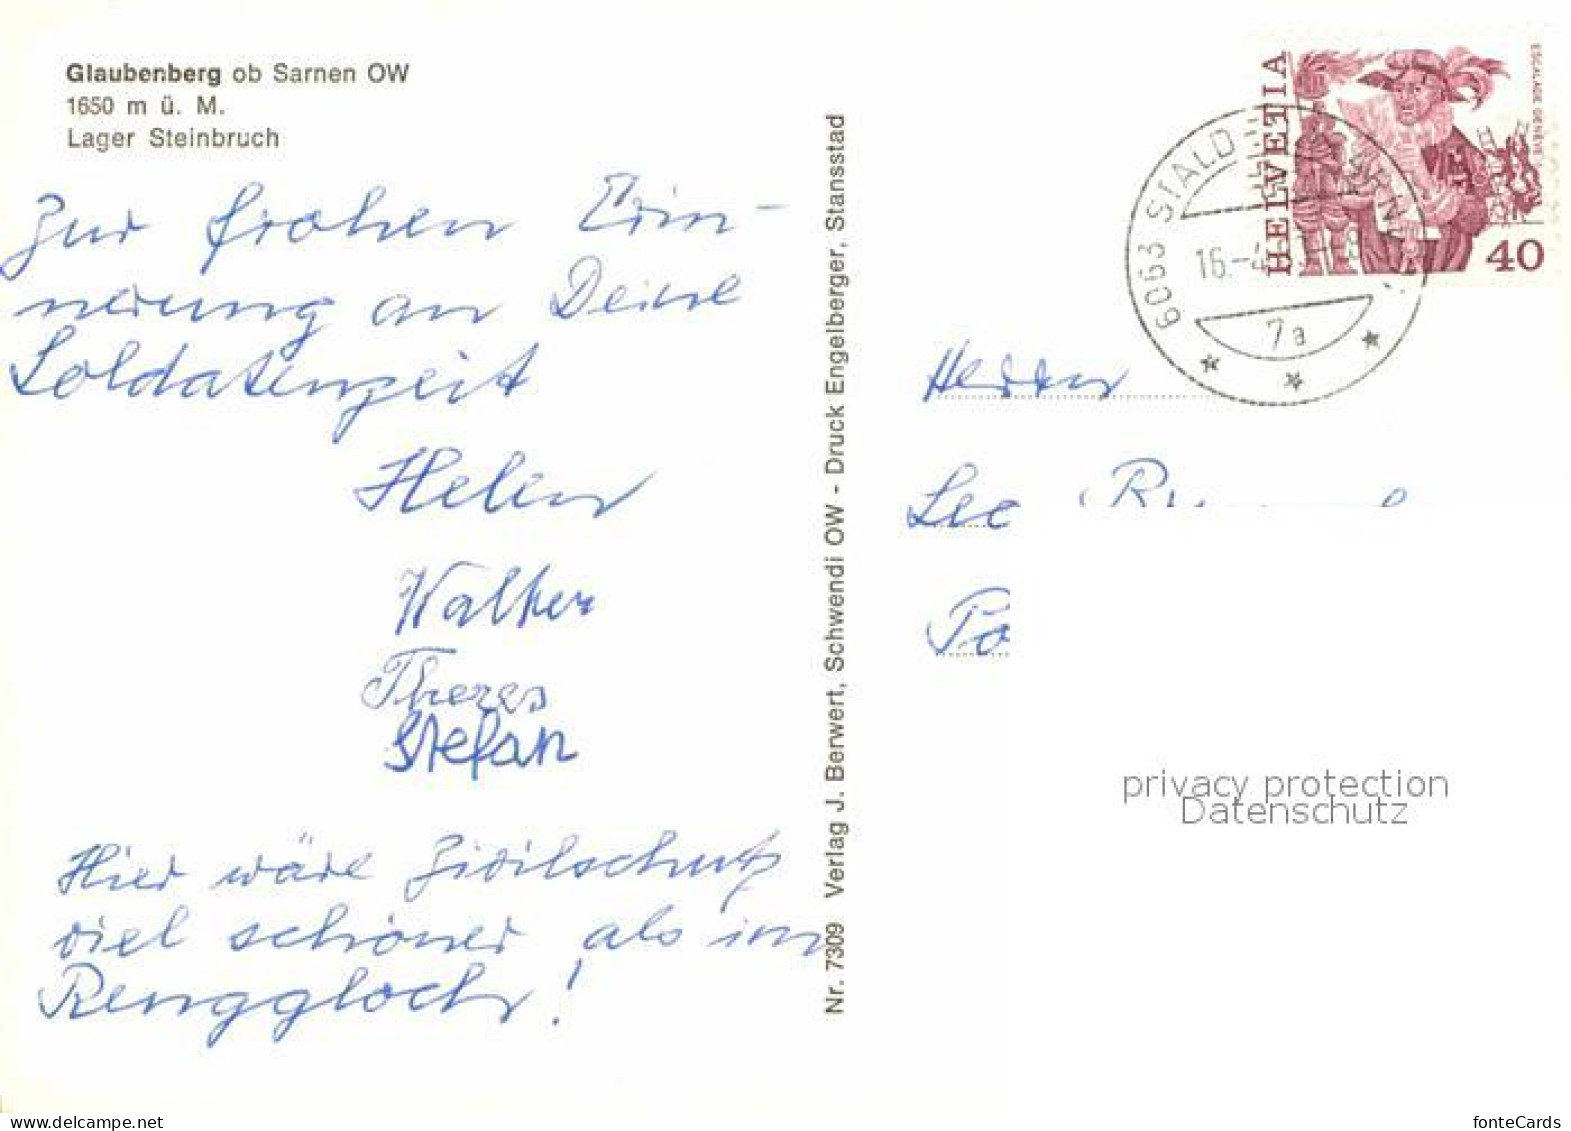 Glaubenberg ob Sarnen OW
1650 m ü. M.
Lager Steinbruch
Zur frohen Erin-
nerung an Deine
Soldatenzeit
Helen
Walter
Theres
Stefan
Hier wäre Zivilschutz
viel schöner als im
Renggloch!
Nr. 7309 Verlag J. Berwert, Schwendi OW - Druck Engelberger, Stansstad
HELVETIA
ESCALADE GENÈVE
40
6063 STALD
16.-4
7a
Herrn
Leo
privacy protection
Datenschutz
www.delcampe.net
fonteCards